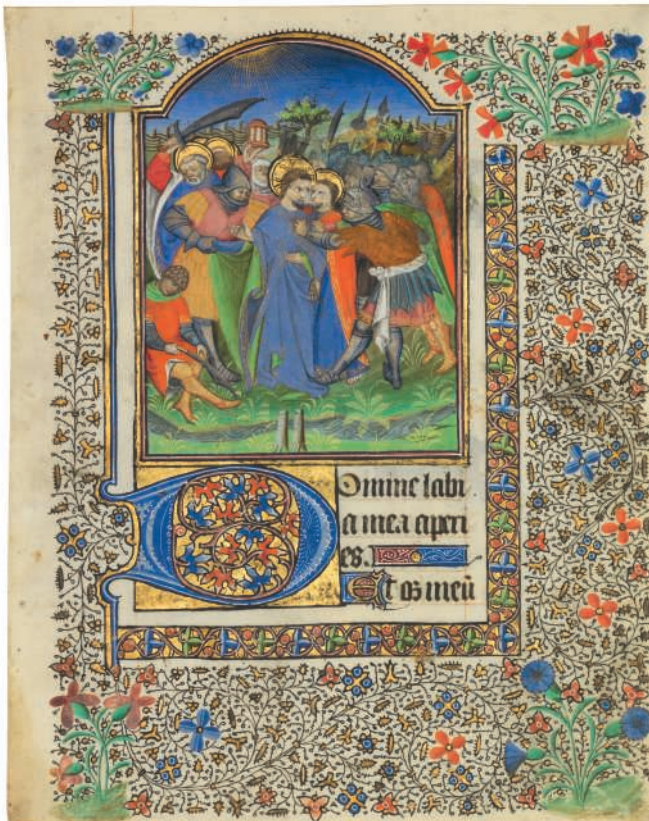 Domine labi
a mea aperi
es.
Et os meū